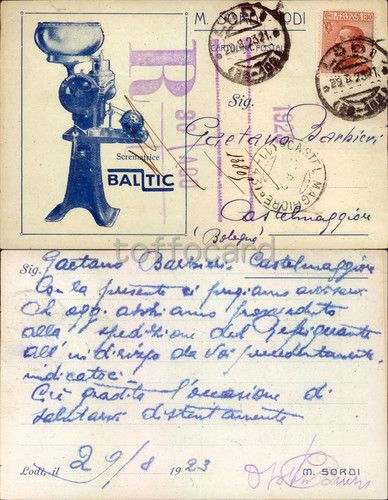 M. SORDI - LODI
CARTOLINA POSTALE
Sig.
Gaetano Barbieri
Castelmaggiore
(Bologna)
Scrematrice
BALTIC
R
1380
CASTEL MAGGIORE
toffocard
Sig. Gaetano Barbieri Castelmaggiore
Con la presente ci pregiamo avvisarvi
che oggi abbiamo provveduto
alla spedizione del Refrigerante
all'indirizzo da voi precedentemente
indicatoci
Ci è gradita l'occasione di
salutarvi distintamente
Lodi, il 29/8 1923
M. SORDI